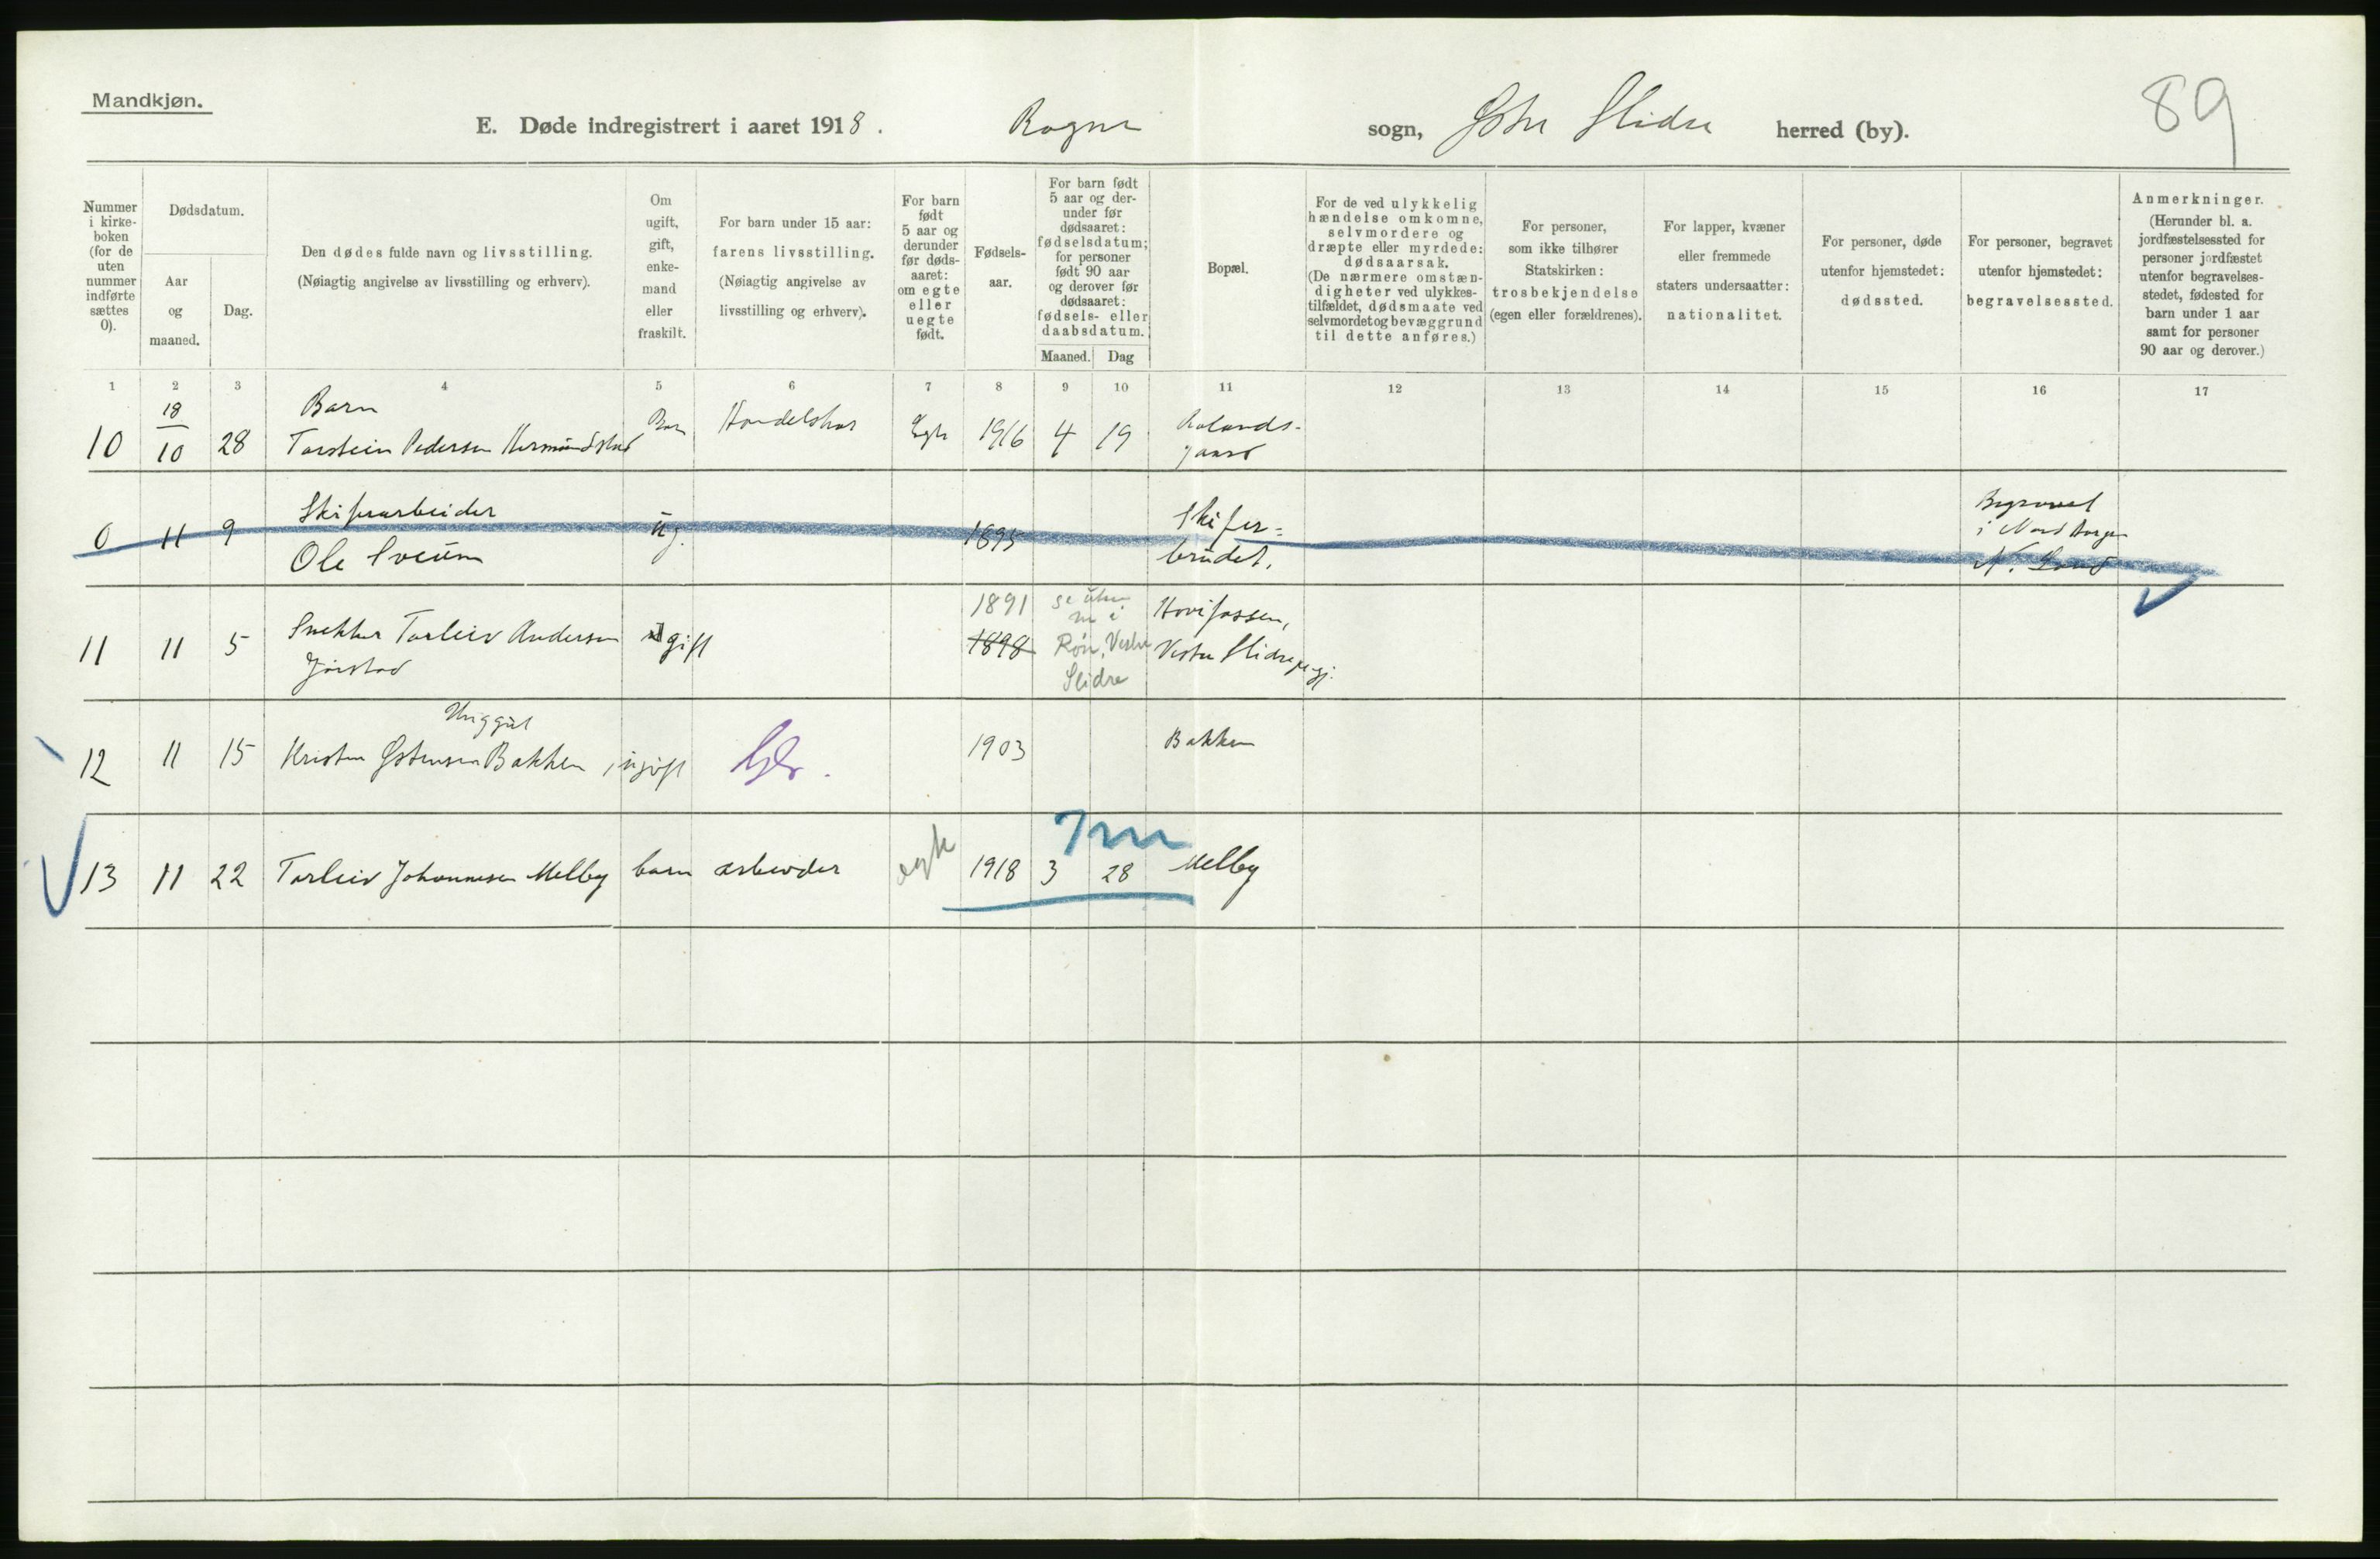 Mandkjøn.
E. Døde indregistrert i aaret 1918. Rogne sogn, Østre Slidre herred (by).
89
Nummer i kirke-boken (for de uten nummer indførte sættes 0).
Dødsdatum.
Aar og maaned.
Dag.
Den dødes fulde navn og livsstilling.
(Nøiagtig angivelse av livsstilling og erhverv).
Om ugift, gift, enke-mand eller fraskilt.
For barn under 15 aar: farens livsstilling.
(Nøiagtig angivelse av livsstilling og erhverv).
For barn født 5 aar og derunder før døds-aaret: om egte eller uegte født.
Fødsels-aar.
For barn født 5 aar og der-under før dødsaaret: fødselsdatum; for personer født 90 aar og derover før dødsaaret: fødsels- eller daabsdatum.
Maaned. Dag
Bopæl.
For de ved ulykkelig hændelse omkomne, selvmordere og dræpte eller myrdede: dødsaarsak.
(De nærmere omstæn-digheter ved ulykkes-tilfældet, dødsmaate ved selvmordet og bevæggrund til dette anføres.)
For personer, som ikke tilhører Statskirken: trosbekjendelse (egen eller forældrenes).
For lapper, kvæner eller fremmede staters undersaatter: nationalitet.
For personer, døde utenfor hjemstedet: dødssted.
For personer, begravet utenfor hjemstedet: begravelsessted.
Anmerkninger.
(Herunder bl. a. jordfæstelsessted for personer jordfæstet utenfor begravelses-stedet, fødested for barn under 1 aar samt for personer 90 aar og derover.)
1 2 3 4 5 6 7 8 9 10 11 12 13 14 15 16 17
18 Barn
10 10 28 Torstein Pedersen Hermundstad Barn Egte 1916 4 19
Skiferarbeider Skifer=
0 11 9 Ole Sveum ug. 1895 brudet.
Begravet
i Nord
N. Land
1891 se uten Hovifossen,
11 11 5 Snekker Torleiv Andersen gift 1898 Røn, Vestre Vestre Slidre
Jørstad Slidre
Huggut
12 11 15 Kristen Østensen Bakken ugift 1903 Bakken
13 11 22 Torleiv Johannesen Melby barn arbeider egte 1918 3 28 Melby